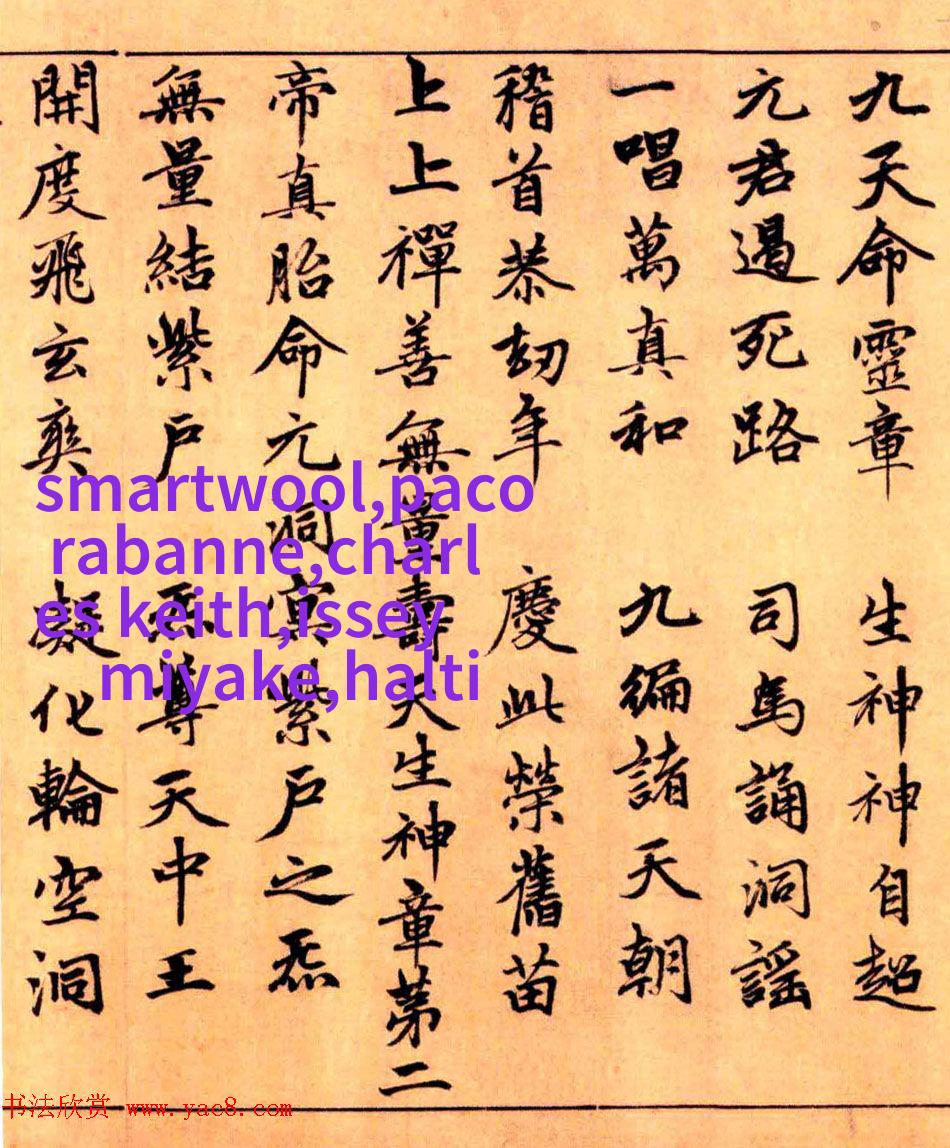 九天命靈章 生神神自超
元君遏死路 司馬誦洞謠
一唱萬真和 九編諸天朝
稽首恭劫年 慶此榮舊苗
上上禪善無量壽天生神章第二
帝真胎命元 洞冥紫戶之炁
無量結紫戶 炁尊天中王
開度飛玄爽 凝化輪空洞
smartwool,paco
rabanne,charl
es keith,issey
miyake,halti
书法欣赏 www.yac8.com